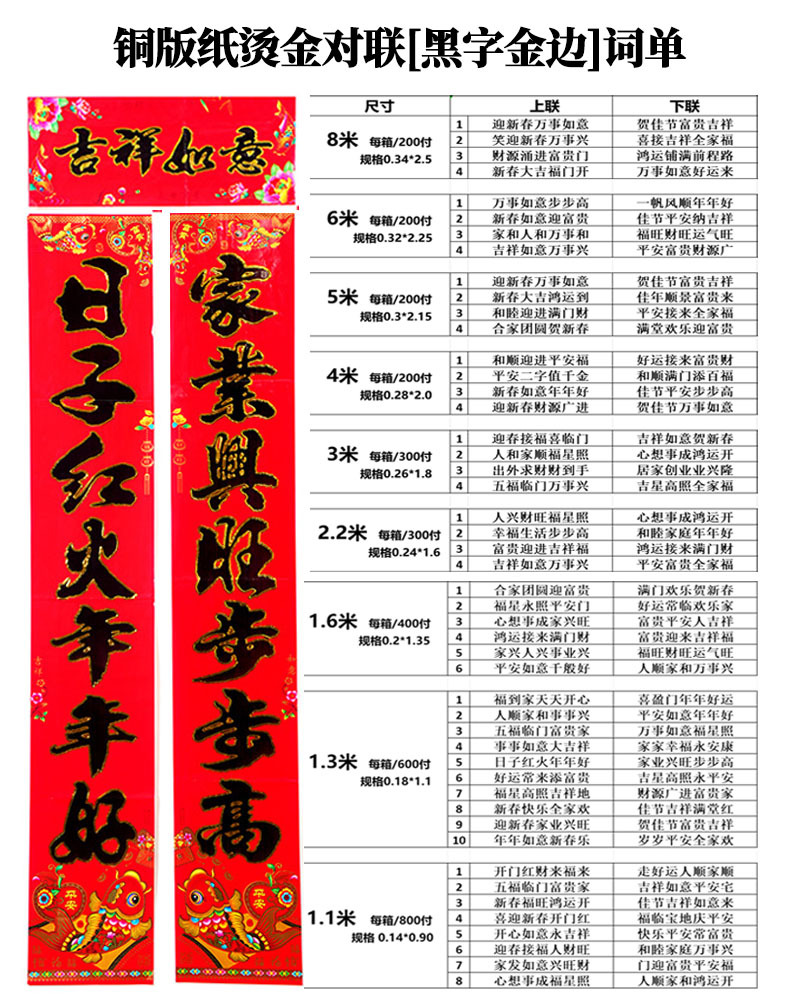 铜版纸烫金对联[黑字金边]词单
吉祥如意
日子红火年年好
家業興旺步步高
吉祥
如意
平安
平安
尺寸 上联 下联
8米 每箱/200付
规格0.34*2.5
1 迎新春万事如意 贺佳节富贵吉祥
2 笑迎新春万事兴 喜接吉祥全家福
3 财源涌进富贵门 鸿运铺满前程路
4 新春大吉福门开 万事如意好运来
6米 每箱/200付
规格0.32*2.25
1 万事如意步步高 一帆风顺年年好
2 新春如意迎富贵 佳节平安纳吉祥
3 家和人和万事和 福旺财旺运气旺
4 吉祥如意万事兴 平安富贵财源广
5米 每箱/200付
规格0.3*2.15
1 迎新春万事如意 贺佳节富贵吉祥
2 新春大吉鸿运到 佳年顺景富贵来
3 和睦迎进满门财 平安接来全家福
4 合家团圆贺新春 满堂欢乐迎富贵
4米 每箱/200付
规格0.28*2.0
1 和顺迎进平安福 好运接来富贵财
2 平安二字值千金 和顺满门添百福
3 新春如意年年好 佳节平安步步高
4 迎新春财源广进 贺佳节万事如意
3米 每箱/300付
规格0.26*1.8
1 迎春接福喜临门 吉祥如意贺新春
2 人和家顺福星照 心想事成鸿运开
3 出外求财财到手 居家创业业兴隆
4 五福临门万事兴 吉星高照全家福
2.2米 每箱/300付
规格0.24*1.6
1 人兴财旺福星照 心想事成鸿运开
2 幸福生活步步高 和睦家庭年年好
3 富贵迎进吉祥福 鸿运接来满门财
4 吉祥如意万事兴 平安富贵全家福
1.6米 每箱/400付
规格0.2*1.35
1 合家团圆迎富贵 满门欢乐贺新春
2 福星永照平安门 好运常临欢乐家
3 心想事成家兴旺 富贵平安人吉祥
4 鸿运接来满门财 富贵迎来吉祥福
5 家兴人兴事业兴 福旺财旺运气旺
6 平安如意千般好 人顺家和万事兴
1.3米 每箱/600付
规格0.18*1.1
1 福到家天天开心 喜盈门年年好运
2 人顺家和事事兴 平安如意年年好
3 五福临门富贵家 万事如意福星照
4 事事如意大吉祥 家家幸福永安康
5 日子红火年年好 家业兴旺步步高
6 好运常来添富贵 吉星高照永平安
7 福星高照吉祥地 财源广进富贵家
8 新春快乐全家欢 佳节吉祥满堂红
9 迎新春家业兴旺 贺佳节富贵吉祥
10 年年如意新春乐 岁岁平安全家欢
1.1米 每箱/800付
规格 0.14*0.90
1 开门红财来福来 走好运人顺家顺
2 五福临门富贵家 吉祥如意平安宅
3 新春福旺鸿运开 佳节吉祥如意来
4 喜迎新春开门红 福临宝地庆平安
5 开心如意永吉祥 快乐平安常富贵
6 迎春接福人财旺 和睦家庭万事兴
7 家发如意兴旺财 门迎富贵平安福
8 心想事成福星照 人顺家和鸿运开